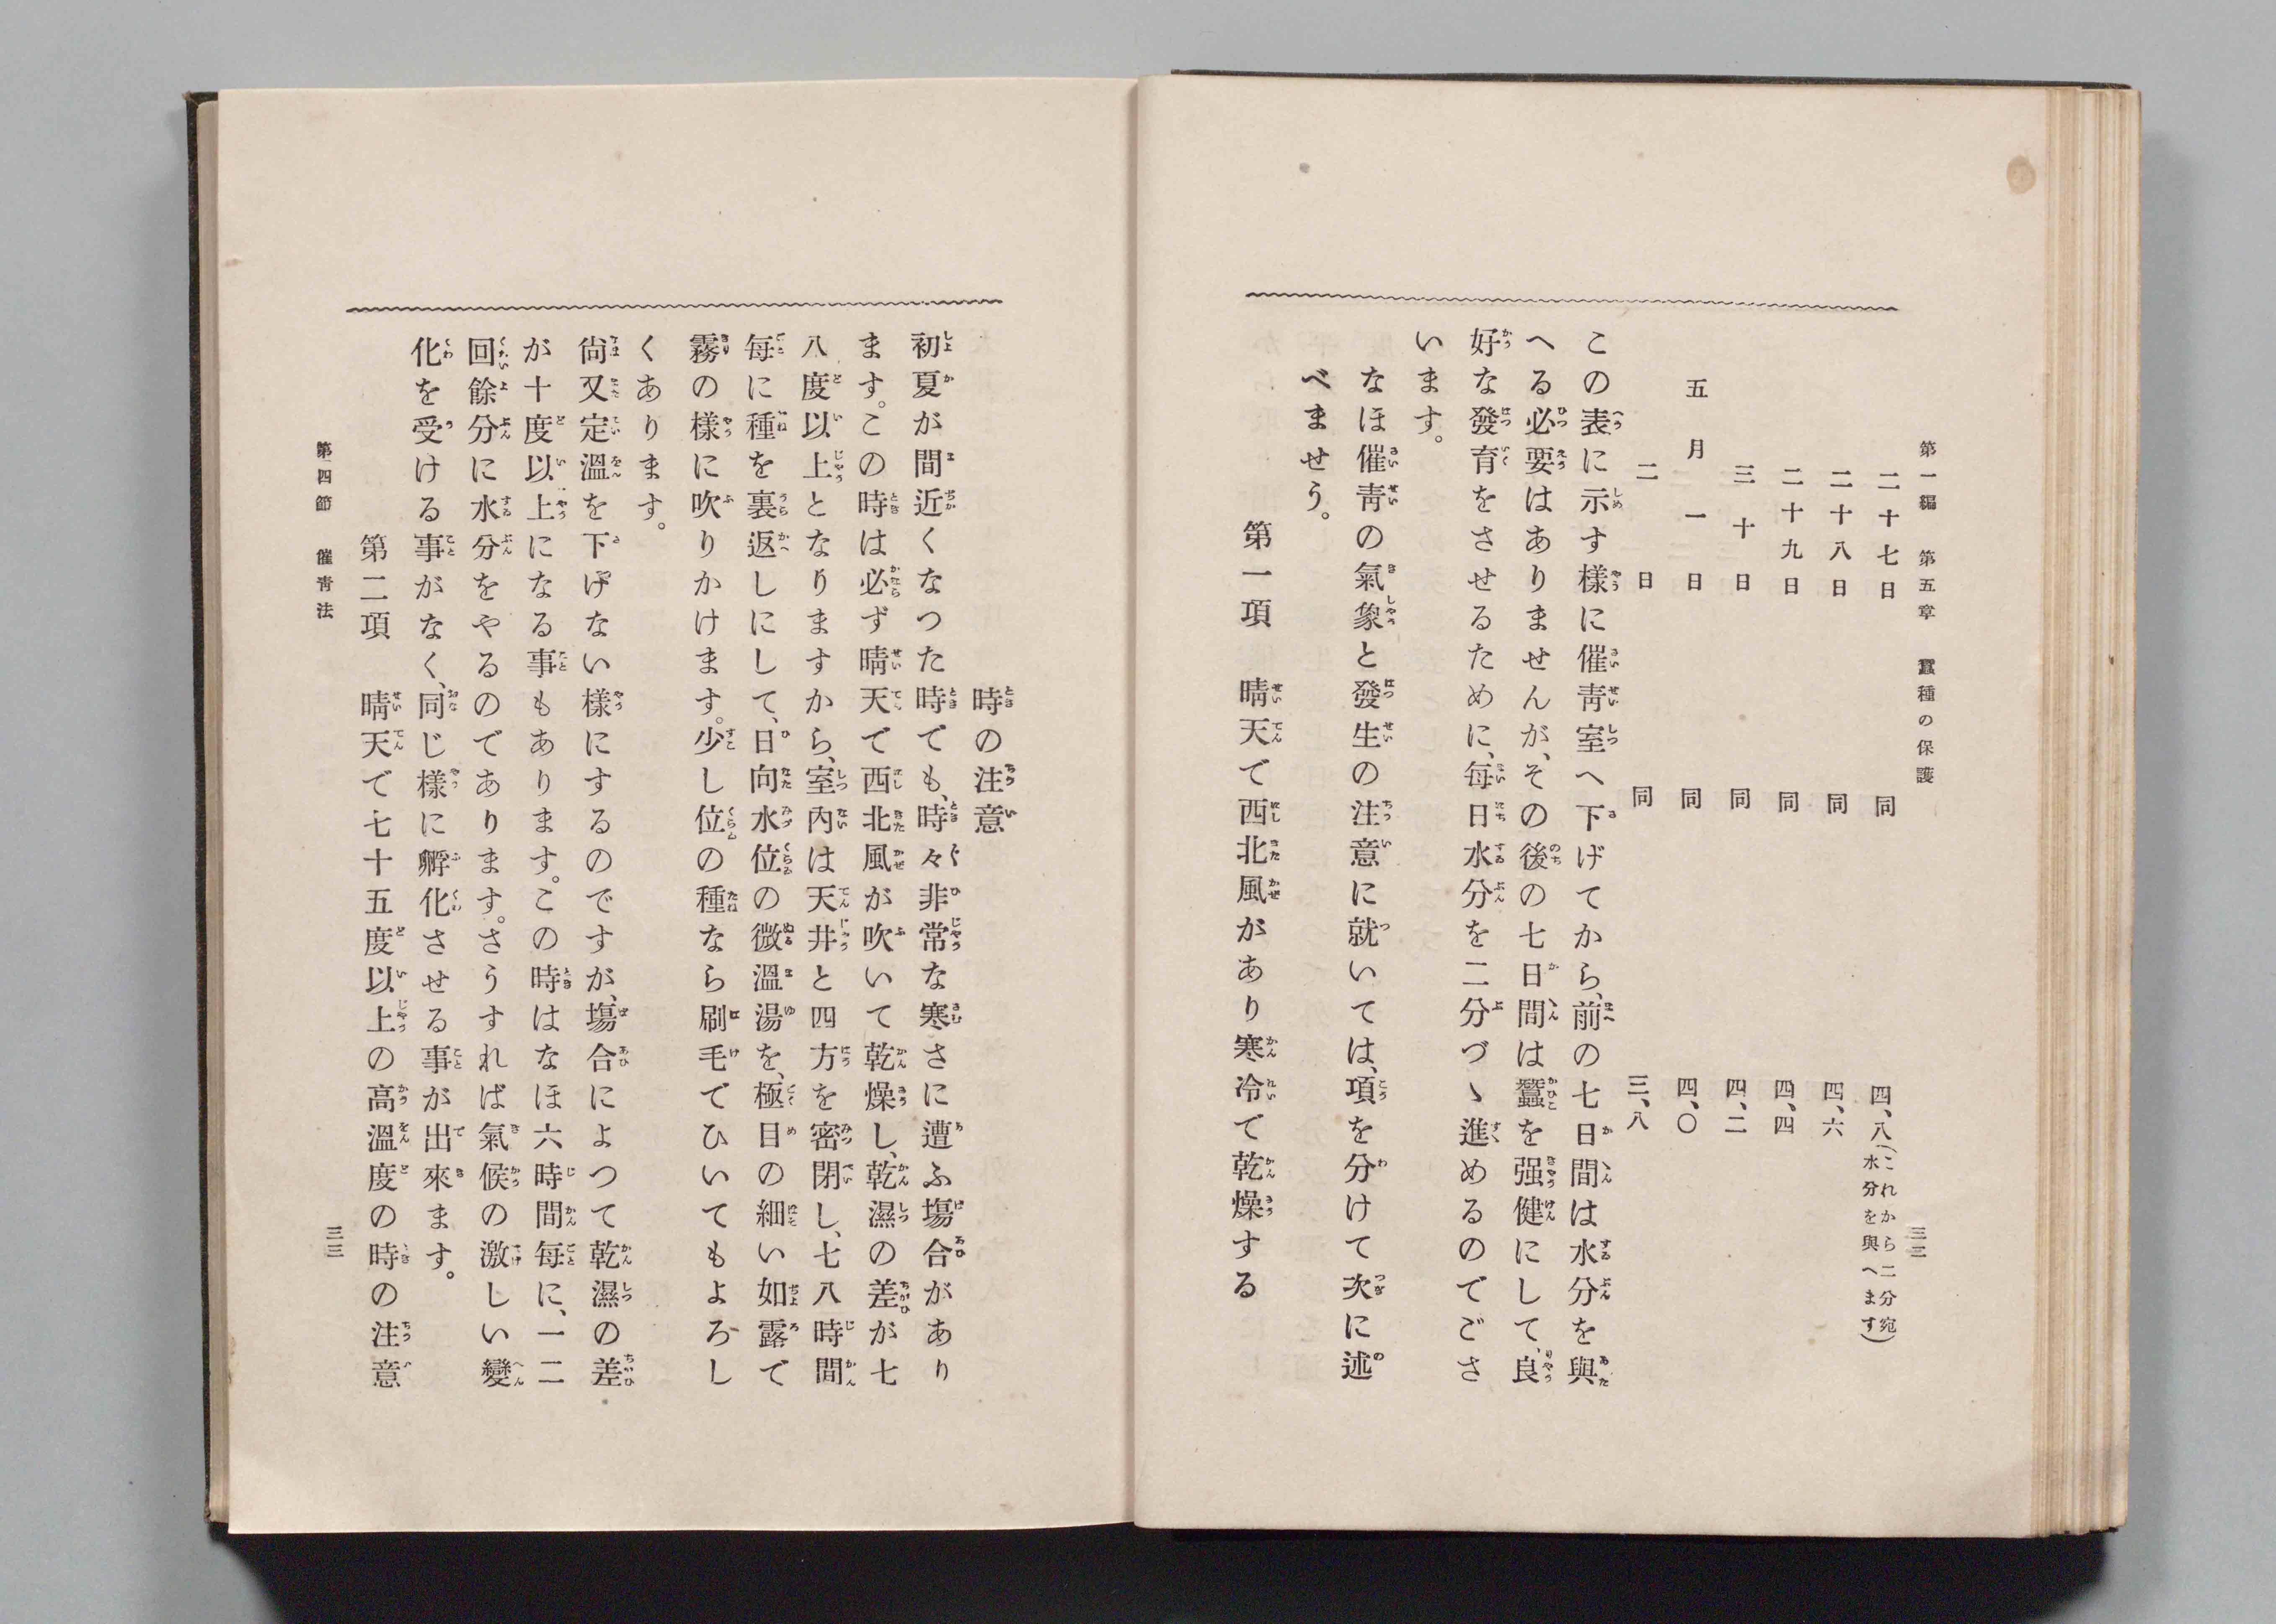 第一編　第五章　蠶種の保護
三二
二十七日　同　四、八(これから二分宛水分を與へます)
二十八日　同　四、六
二十九日　同　四、四
三十日　同　四、二
五月一日　同　四、〇
二日　同　三、八
この表に示す樣に催靑室へ下げてから、前の七日間は水分を與
へる必要はありませんが、その後の七日間は蠶を强健にして、良
好な發育をさせるために、每日水分を二分づゝ進めるのでござ
います。
なほ催靑の氣象と發生の注意に就いては、項を分けて次に述
べませう。
第一項　晴天で西北風があり寒冷で乾燥する
時の注意
初夏が間近くなつた時でも、時々非常な寒さに遭ふ塲合があり
ます。この時は必ず晴天で西北風が吹いて乾燥し、乾濕の差が七
八度以上となりますから、室內は天井と四方を密閉し、七八時間
每に種を裏返しにして、日向水位の微溫湯を、極目の細い如露で
霧の樣に吹りかけます。少し位の種なら刷毛でひいてもよろし
くあります。
尙又定溫を下げない樣にするのですが、塲合によつて乾濕の差
が十度以上になる事もあります。この時はなほ六時間每に、一二
回餘分に水分をやるのであります。さうすれば氣候の激しい變
化を受ける事がなく、同じ樣に孵化させる事が出來ます。
第二項　晴天で七十五度以上の高溫度の時の注意
第四節　催靑法
三三